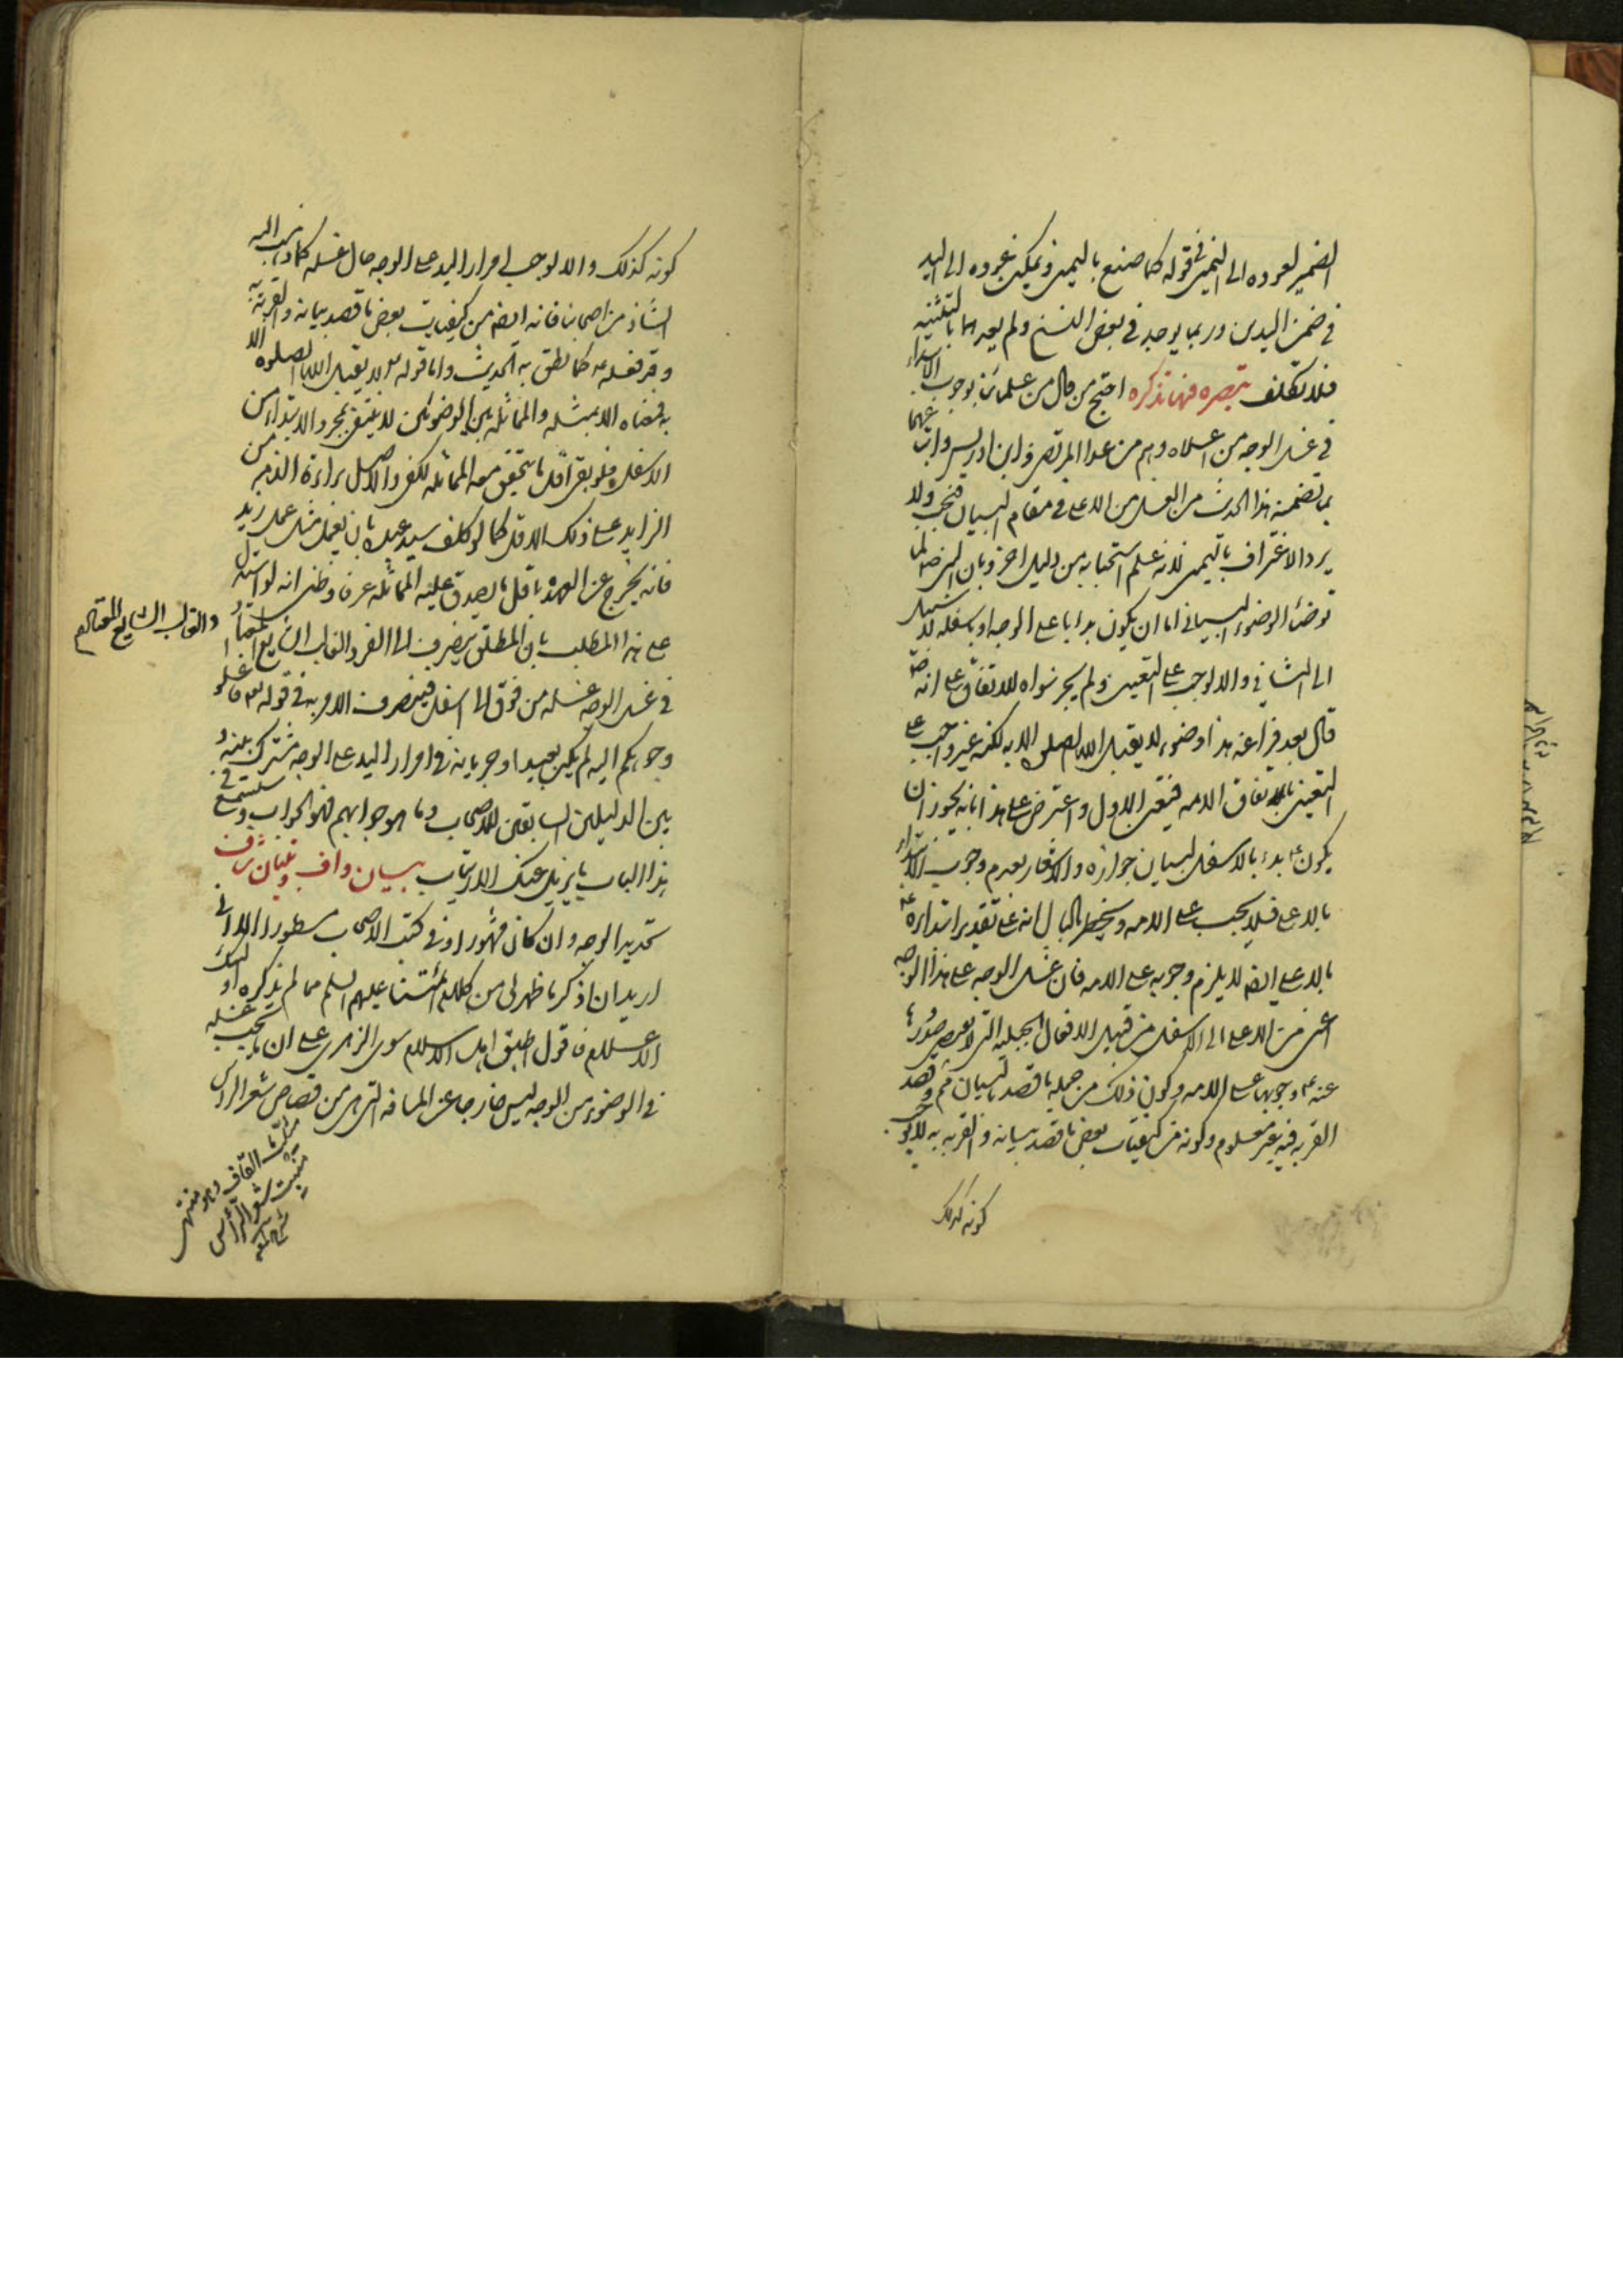 الضمير لعوده الى اليمين في قوله كما صنع باليمين ويمكن عوده الى اليد
في ضمن اليدين وربما يوجد في بعض النسخ ولم يعدهما بالتثنيه
فلا تكلف تبصره فيها تذكره احتج من قال من علمائنا بوجوب الابتداء
في غسل الوجه من اعلاه وهم من عدا المرتضى وابن ادريس واتباعهما
بما تضمنه هذا الحديث من الغسل من الاعلى في مقام البيان فتجب ولا
يرد الاغتراف باليمين لانه علم استحبابه من دليل اخر وبان النبي ص لما
توضأ الوضوء البياني اما ان يكون بدا باعلى الوجه او باسفله لا سبيل
الى الثاني والا لوجب على التعيين ولم يجز سواه للاتفاق على انه ص
قال بعد فراغه هذا وضوء لا يقبل الله الصلوة الا به لكنه غير واجب على
التعيين باتفاق الامه فيتعين الاول واعترض على هذا بانه يجوز ان
يكون ع بدء بالاسفل لبيان جوازه والاشعار بعدم وجوب الابتداء
بالاعلى فلا يجب على الامه ويخطر بالبال انه على تقدير ابتدائه ع
بالاعلى ايضا لا يلزم وجوبه على الامه فان غسل الوجه على هذا الوجه
اعني من الاعلى الى الاسفل من قبيل الافعال الجبليه التي لا يقتضي صدورها
عنه ع وجوبها على الامه وكون ذلك من جمله ما قصد بالبيان ثم وقصد
القربه فيه غير معلوم وكونه من كيفيات بعض ما قصد بيانه والقربه به لا يوجب
كونه كذلك
كونه كذلك والا لوجب امرار اليد على الوجه حال غسله كما ذهب اليه
الشاذ من اصحابنا فانه ايضا من كيفيات بعض ما قصد بيانه والقربة به
وقد فعله ع كما نطق به الحديث واما قوله ص لا يقبل الله الصلوه الا
به فمعناه الا بمثله والمماثله بين الوضوئين لا ينتفي بمجرد الابتداء من
الاسفل ولو بقي اقل ما يتحقق معه المماثله لكفى والاصل براءة الذمه من
الزايد على ذلك الاقل كما لو كلف سيد عبده بان يعمل مثل عمل زيد
فانه يخرج عن العهده باقل ما يصدق عليه المماثله عرفا وظني انه لو استدل
على هذا المطلب بان المطلق ينصرف الى الفرد الغالب الشايع المتعارف
والغالب الشايع المتعارف
في غسل الوجه غسله من فوق الى اسفل فينصرف الامر به في قوله تعالى فاغسلوا
وجوهكم اليه لم يكن بعيدا وجريانه في امرار اليد على الوجه مشترك بينه و
بين الدليلين السابقين للاصحاب وما هو جوابهم فهو الجواب وستسمع في
هذا الباب ما يزيل عنك الارتياب بيان واف وتبيان شاف
تحديد الوجه وان كان مشهورا وفي كتب الاصحاب مسطورا الا اني
اريد ان اذكر ما ظهر لي من كلام ائمتنا عليهم السلم مما لم يذكره اولئك
الاعلام فاقول اطبق اهل الاسلام سوى الزهري على ان ما يجب غسله
في الوضوء من الوجه ليس خارجا عن المسافه التي هي من قصاص شعر الراس
مثلث القاف وهو منتهى
منبت شعر الرأس